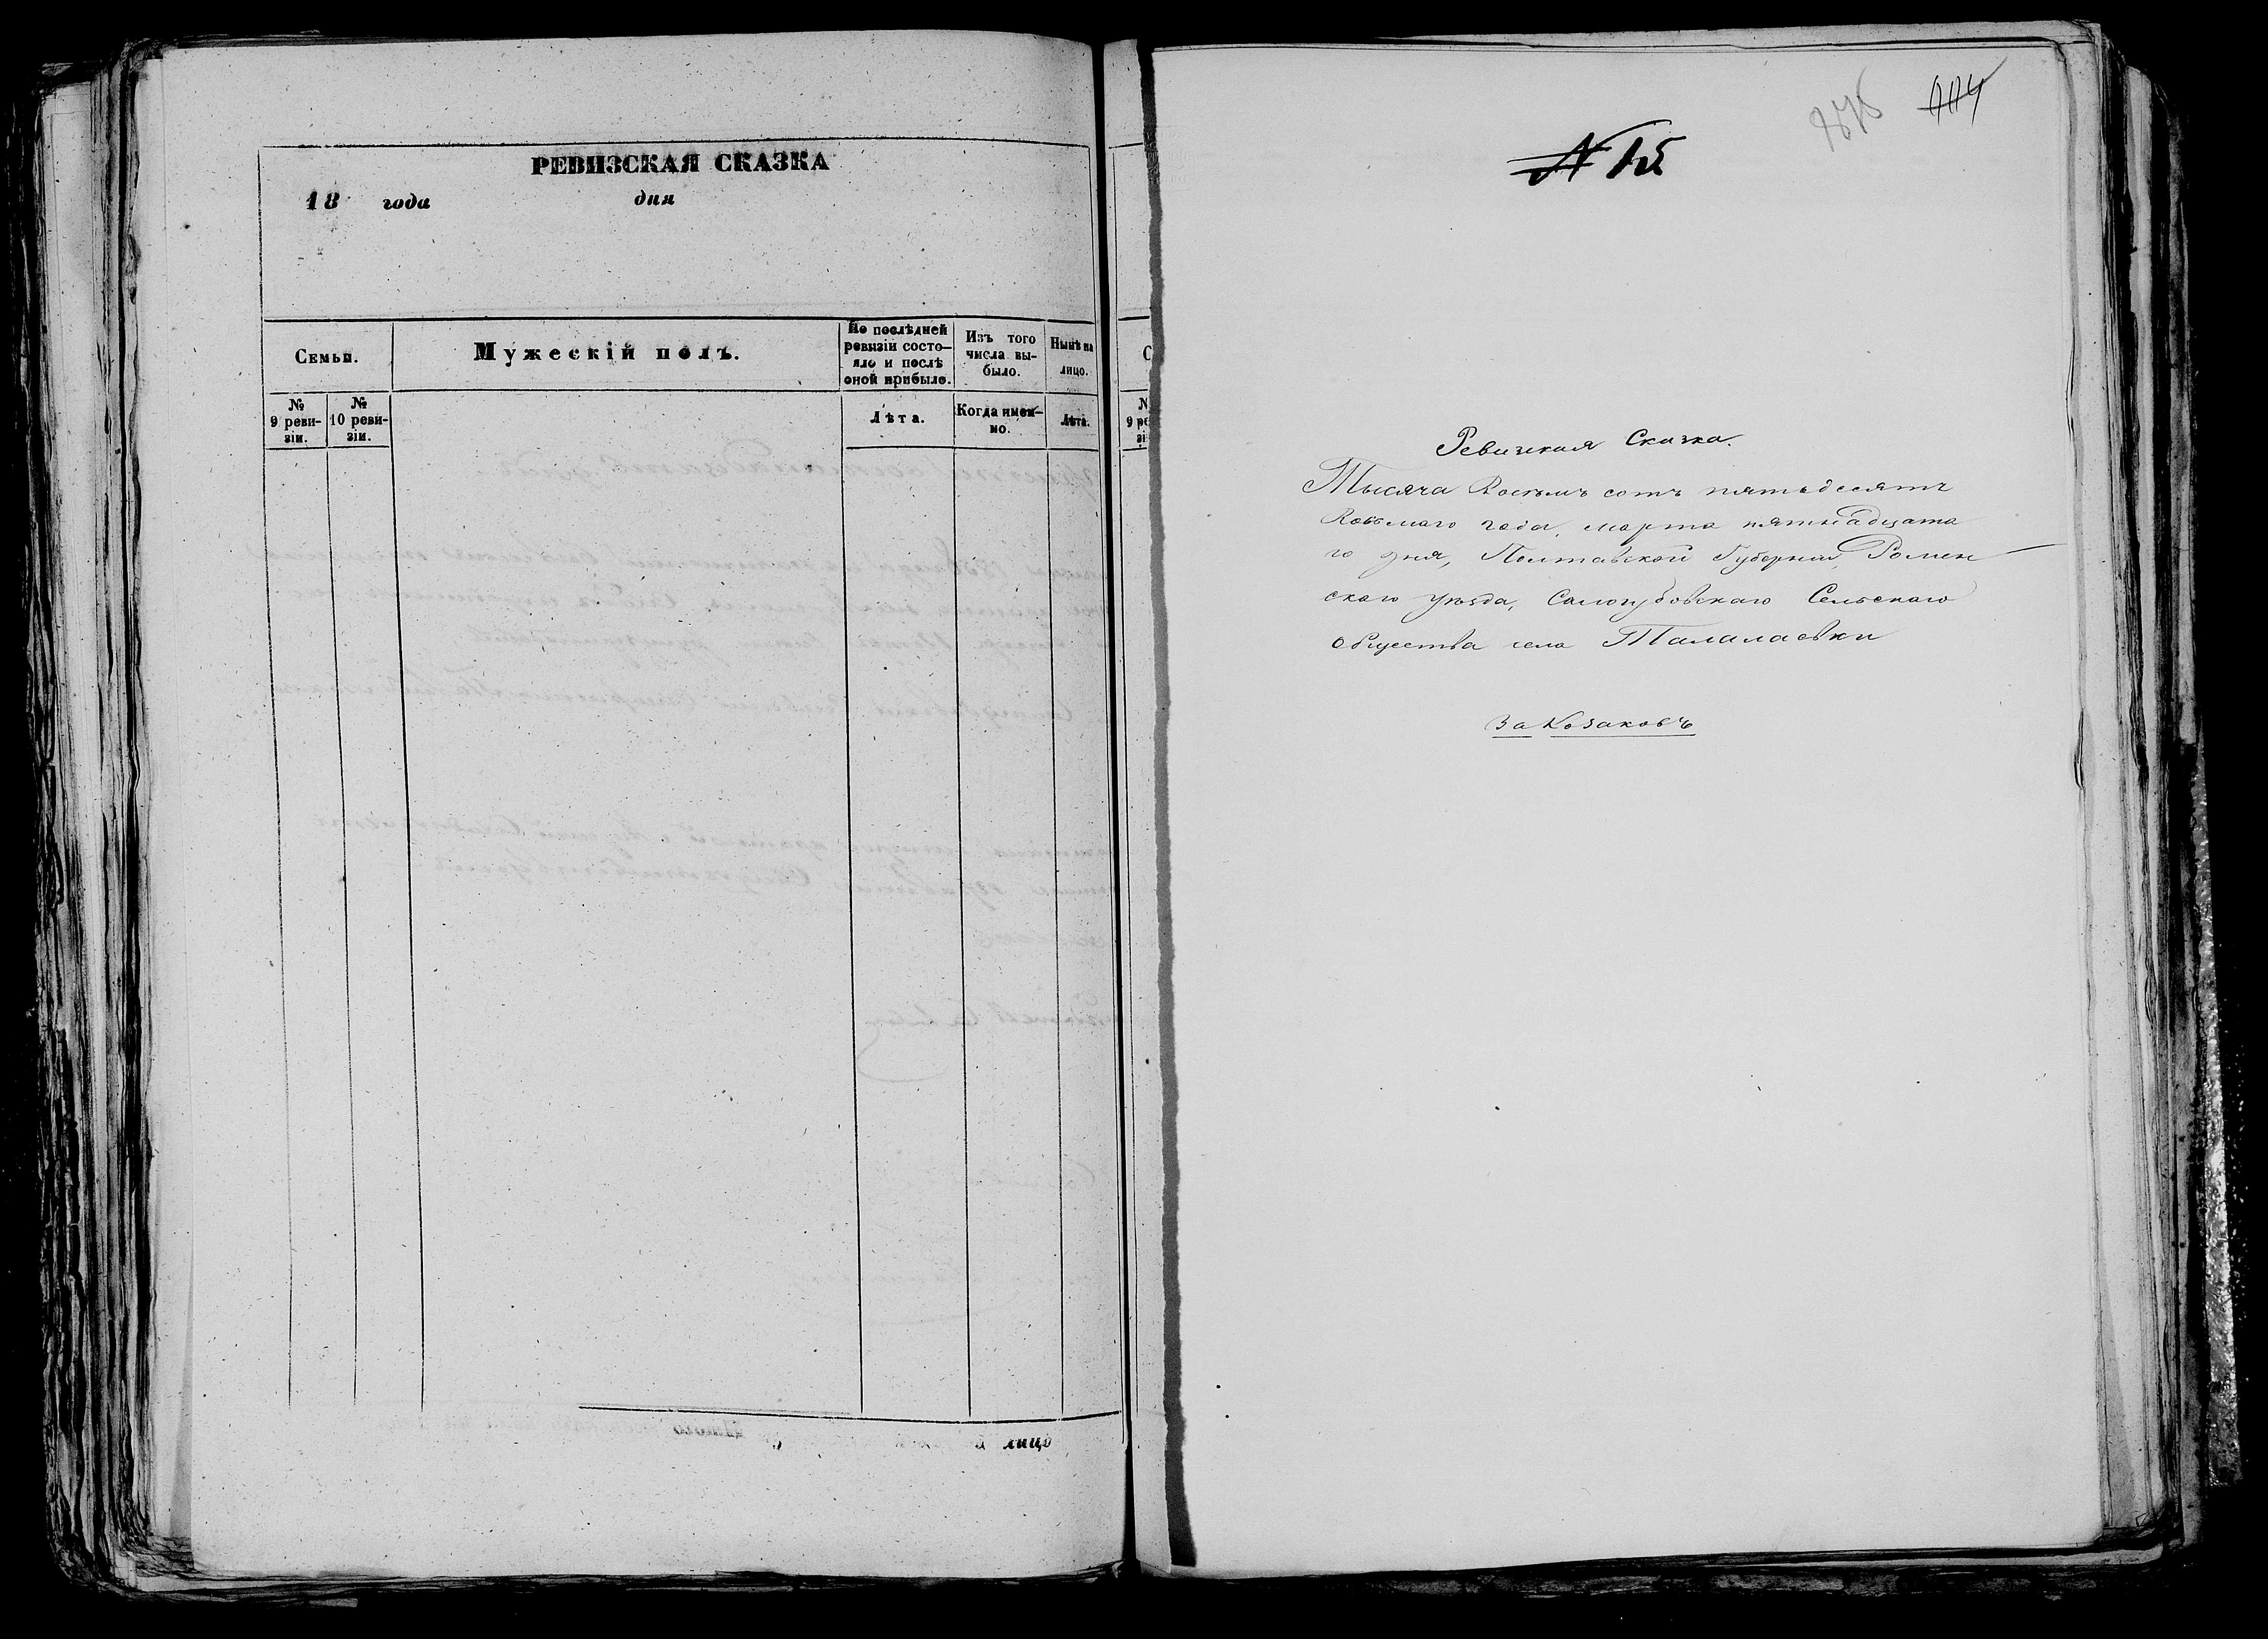 РЕВИЗСКАЯ СКАЗКА
18 года дня
Семьи.
Мужескій полъ.
По послѣдней ревизіи состо—яло и послѣ оной прибыло.
Изъ того числа вы-было.
Нынѣ на лицо.
№ 9 реви-зіи.
№ 10 реви-зіи.
Лѣта.
Когда имен—но.
Лѣта.
Итого
лицо
N 15
Ревизская Сказка.
Тысяча Восемь сотъ пятьдесятъ
Восьмаго года, марта пятнадцата
го дня, Полтавской Губерніи, Ромен
скаго уѣзда, Сологубовскаго Сельскаго
общества села Талалаевки
За Козаковъ